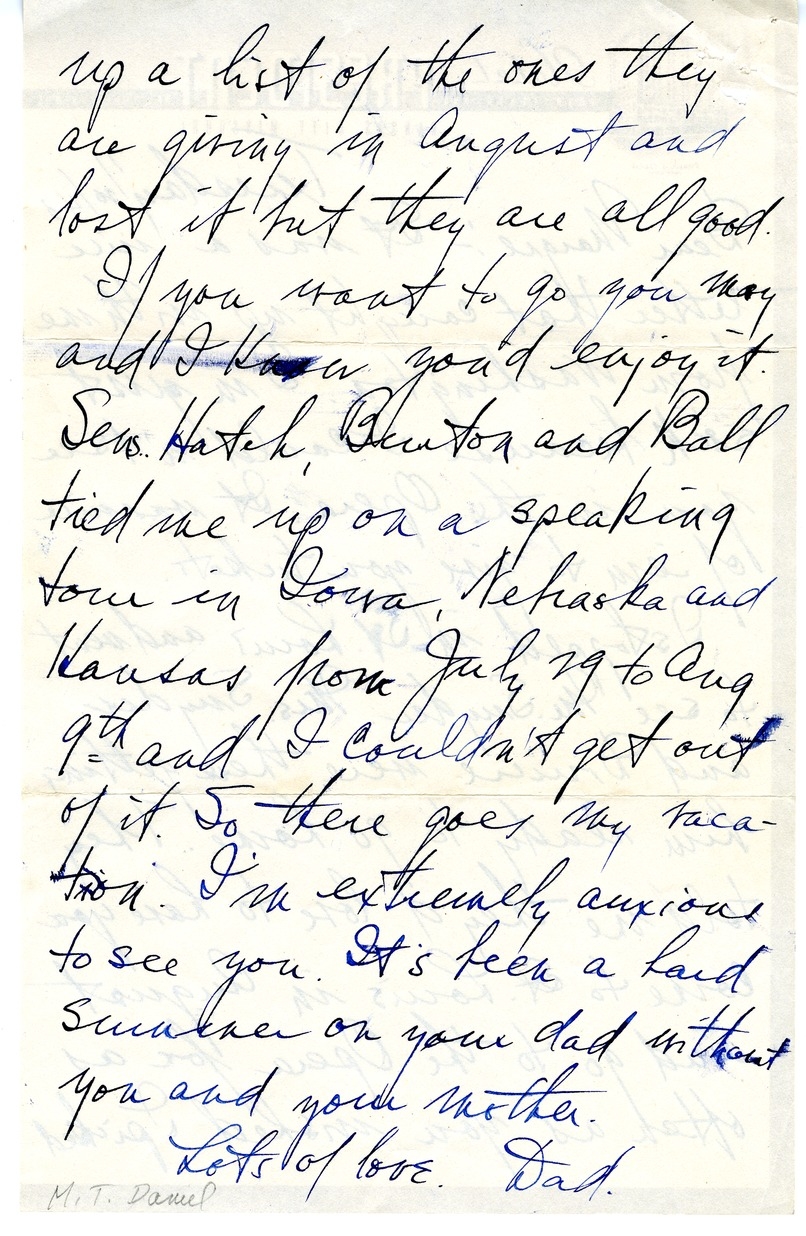 up a list of the ones they
are giving in August and
lost it but they are all good.
If you want to go you may
and I know you'd enjoy it.
Sens. Hatch, Burton and Ball
tied me up on a speaking
tour in Iowa, Nebraska and
Kansas from July 29 to Aug
9th and I couldn't get out
of it. So there goes my vaca-
tion. I'm extremely anxious
to see you. It's been a hard
summer on your dad without
you and your mother.
Lots of love. Dad.
M. T. Daniel